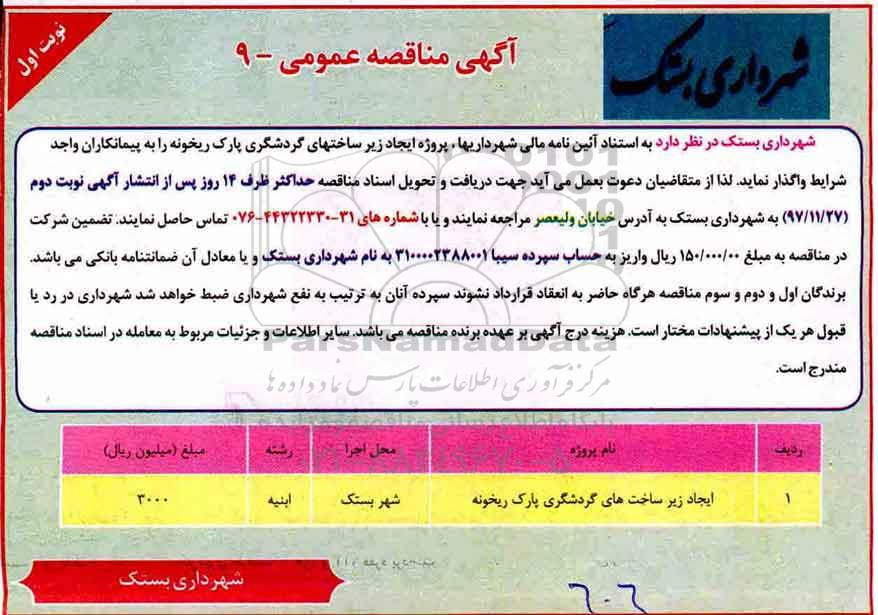 نوبت اول
آگهی مناقصه عمومی - ۹
شهرداری بستک
شهرداری بستک در نظر دارد به استناد آئین نامه مالی شهرداریها، پروژه ایجاد زیر ساختهای گردشگری پارک ریخونه را به پیمانکاران واجد
شرایط واگذار نماید. لذا از متقاضیان دعوت بعمل می آید جهت دریافت و تحویل اسناد مناقصه حداکثر ظرف ۱۴ روز پس از انتشار آگهی نوبت دوم
(۹۷/۱۱/۲۷) به شهرداری بستک به آدرس خیابان ولیعصر مراجعه نمایند و یا با شماره های ۳۱-۴۴۳۲۲۳۳۰-۰۷۶ تماس حاصل نمایند. تضمین شرکت
در مناقصه به مبلغ ۱۵۰/۰۰۰/۰۰ ریال واریز به حساب سپرده سیبا ۳۱۰۰۰۰۲۳۸۸۰۰۱ به نام شهرداری بستک و یا معادل آن ضمانتنامه بانکی می باشد.
برندگان اول و دوم و سوم مناقصه هرگاه حاضر به انعقاد قرارداد نشوند سپرده آنان به ترتیب به نفع شهرداری ضبط خواهد شد شهرداری در رد یا
قبول هر یک از پیشنهادات مختار است. هزینه درج آگهی بر عهده برنده مناقصه می باشد. سایر اطلاعات و جزئیات مربوط به معامله در اسناد مناقصه
مندرج است.
ParsNamadData
مرکز فرآوری اطلاعات پارس نماد داده ها
ردیف نام پروژه محل اجرا رشته مبلغ (میلیون ریال)
۱ ایجاد زیر ساخت های گردشگری پارک ریخونه شهر بستک ابنیه ۳۰۰۰
شهرداری بستک
۶۰۶